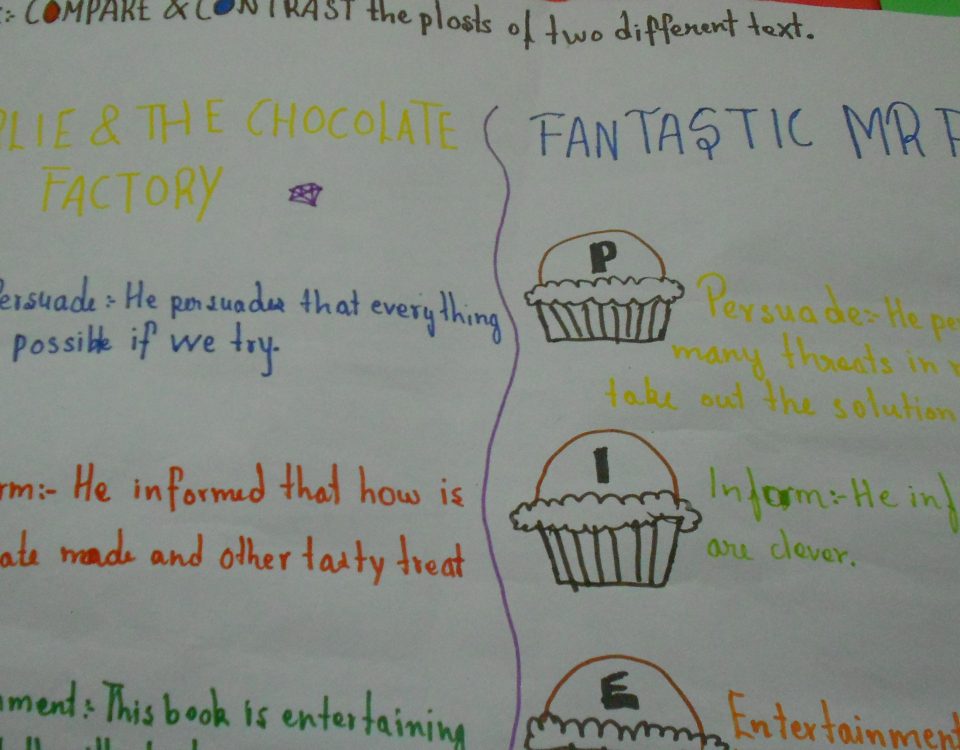 COMPARE & CONTRAST the plosts of two different text.
LIE & THE CHOCOLATE
FACTORY
ersuade:- He persuades that everything
possible if we try.
rm:- He informed that how is
ate made and other tasty treat
nment:- This book is entertaining
FANTASTIC MR F
P
Persuade:- He per
many threats in
take out the solution
I
Inform:- He inf
are clever.
E
Entertainment